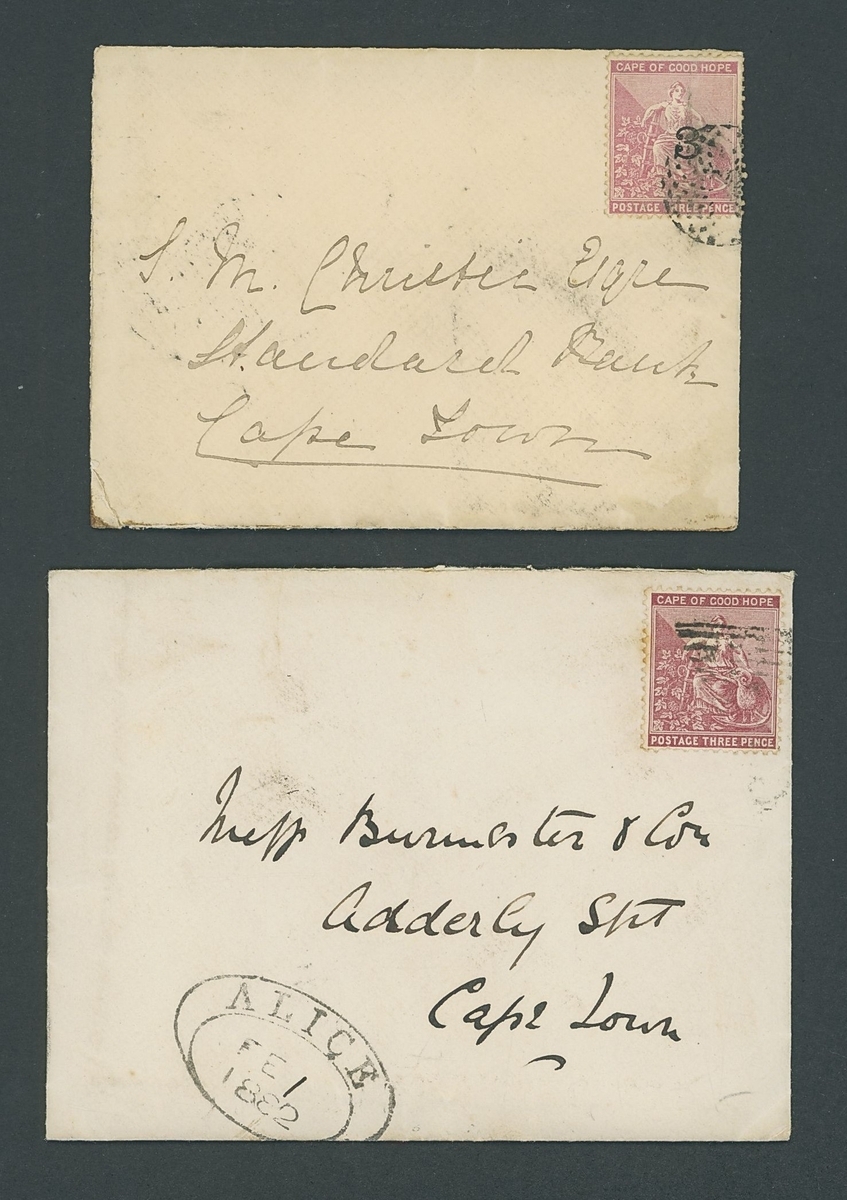 CAPE OF GOOD HOPE
3
POSTAGE THREE PENCE
S. M. Christie Esqre
Standard Bank
Cape Town
CAPE OF GOOD HOPE
POSTAGE THREE PENCE
Messs Burmester & Co
Adderly Stt
Cape Town
ALICE
FE 1
1882